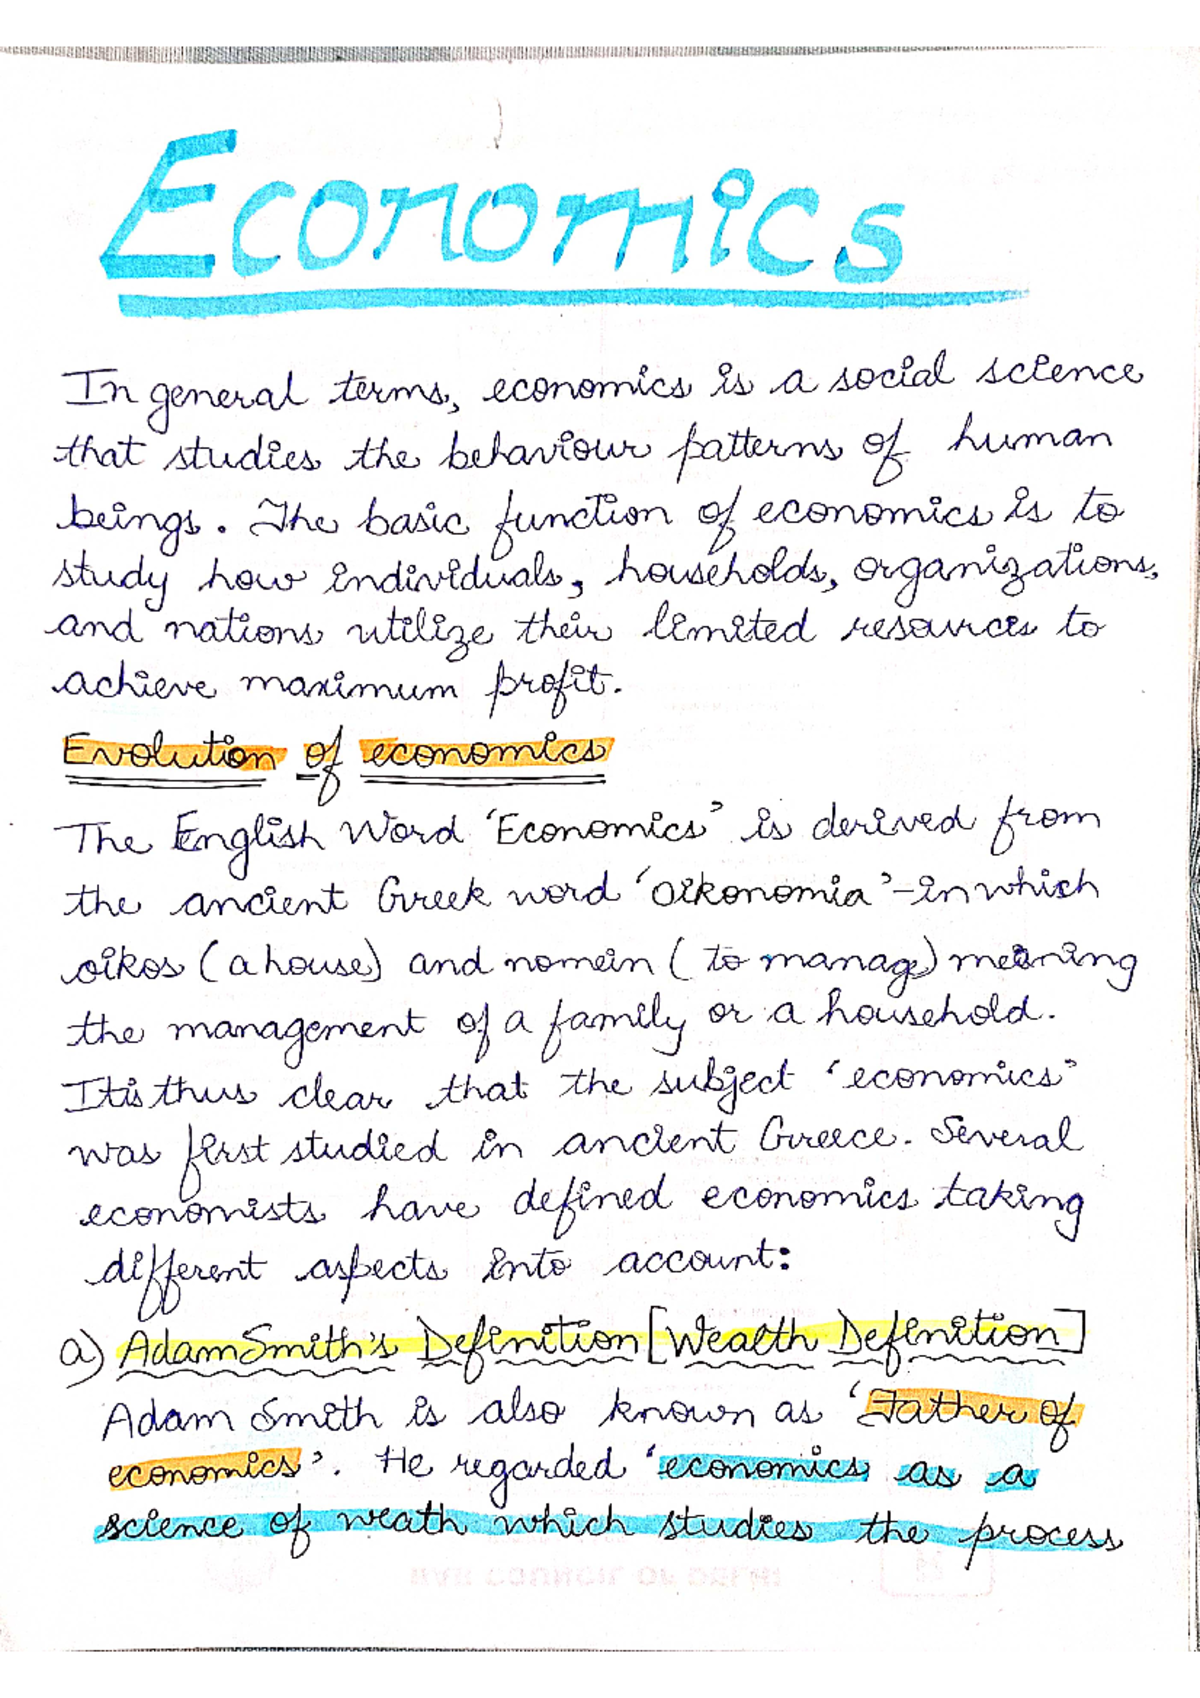 Economics
In general terms, economics is a social science
that studies the behaviour patterns of human
beings. The basic function of economics is to
study how individuals, households, organizations,
and nations utilize their limited resources to
achieve maximum profit.
Evolution of economics
The English Word 'Economics' is derived from
the ancient Greek word 'Oikonomia' - in which
oikos (a house) and nomein (to manage) meaning
the management of a family or a household.
It is thus clear that the subject 'economics'
was first studied in ancient Greece. Several
economists have defined economics taking
different aspects into account:
a) Adam Smith's Definition [Wealth Definition]
Adam Smith is also known as 'Father of
economics'. He regarded 'economics as a
science of weath which studies the process